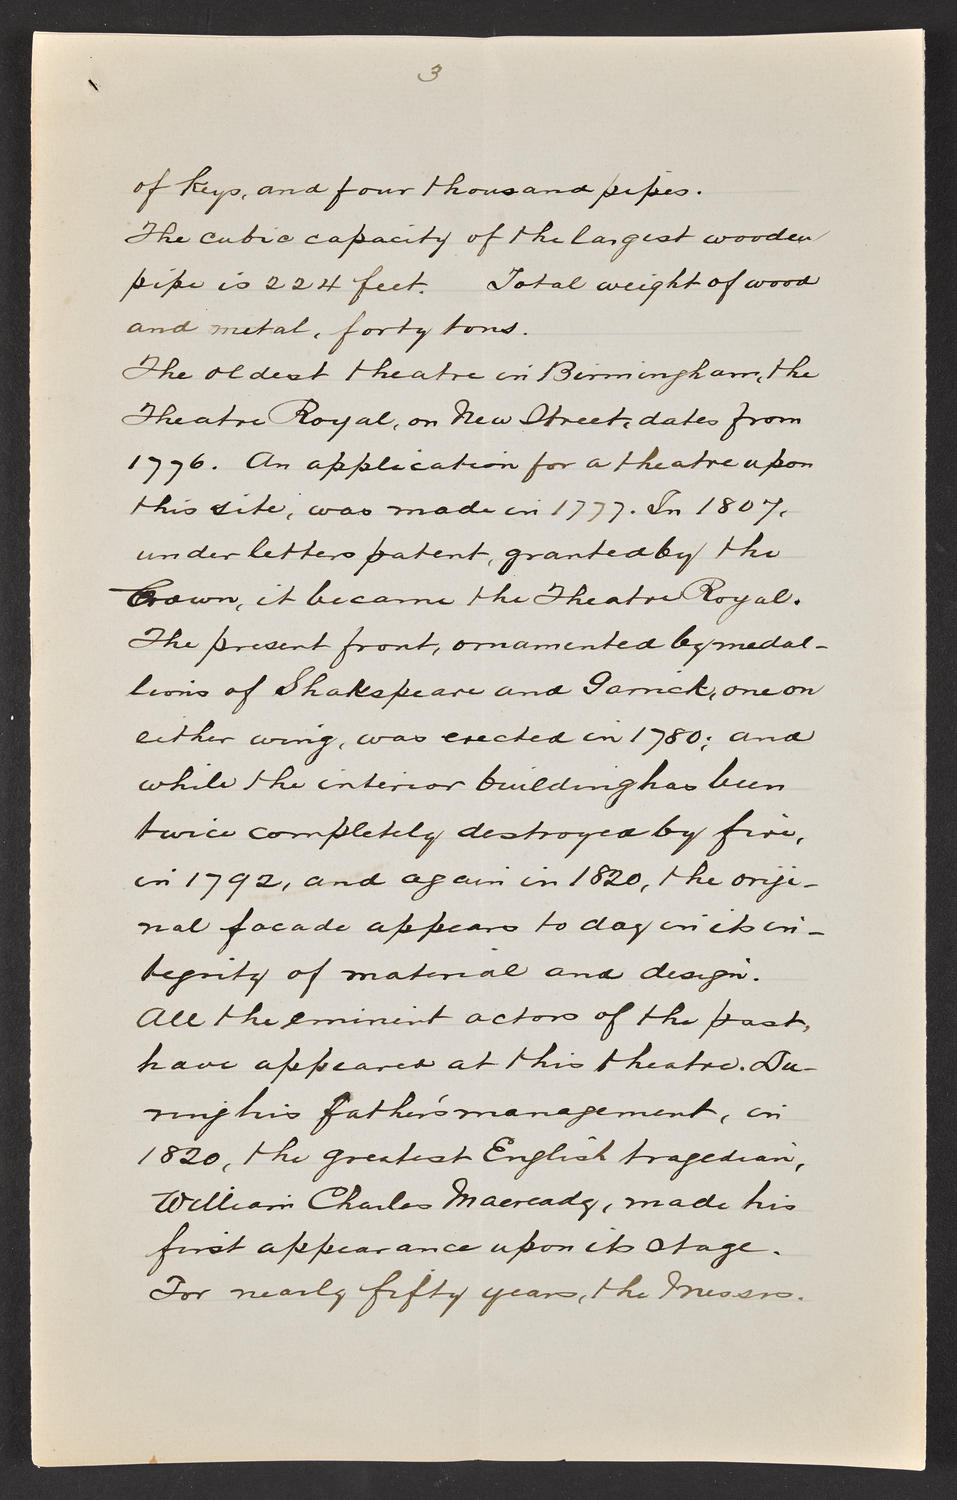 3
of keys, and four thousand pipes.
The cubic capacity of the largest wooden
pipe is 224 feet. Total weight of wood
and metal, forty tons.
The oldest theatre in Birmingham, the
Theatre Royal, on New Street, dates from
1776. An application for a theatre upon
this site, was made in 1777. In 1807,
under letters patent, granted by the
Crown, it became the Theatre Royal.
The present front, ornamented by medal-
lions of Shakspeare and Garrick, one on
either wing, was erected in 1780; and
while the interior building has been
twice completely destroyed by fire,
in 1792, and again in 1820, the origi-
nal facade appears to day in its in-
tegrity of material and design.
All the eminent actors of the past,
have appeared at this theatre. Du-
ring his father's management, in
1820, the greatest English tragedian,
William Charles Macready, made his
first appearance upon its stage.
For nearly fifty years, the Messrs.